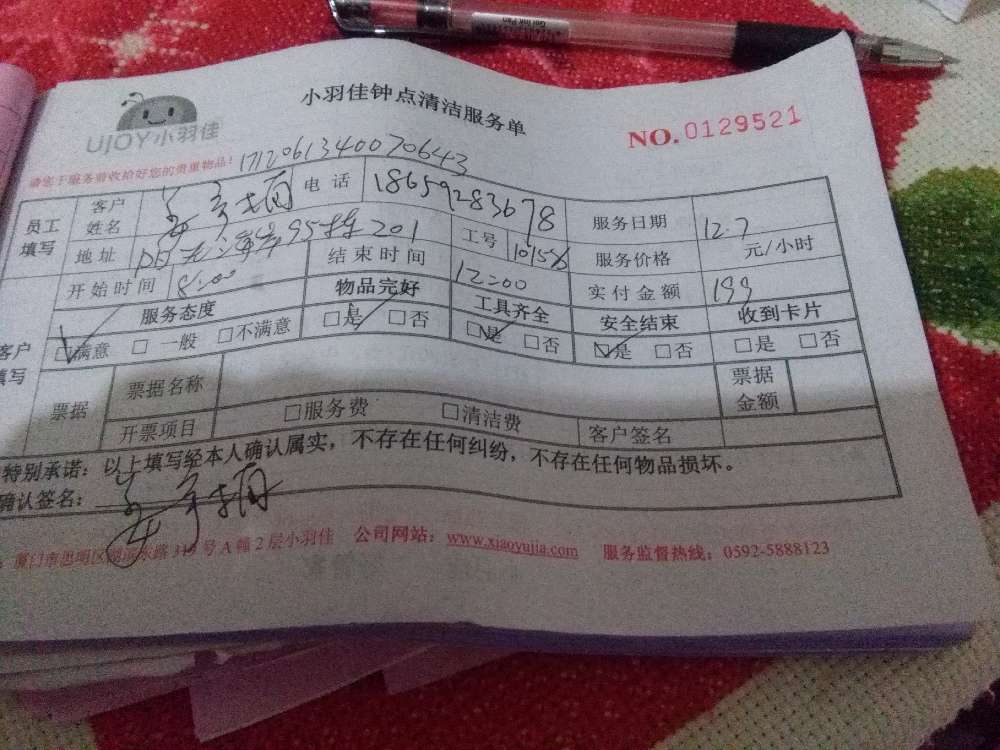 Gel Ink Pen
UJOY小羽佳
小羽佳钟点清洁服务单
NO.0129521
请您于服务前收给好您的贵重物品!
1712061340070643
员工填写 客户姓名 电话 18659283678 服务日期 12.7
地址 阳光海岸95栋201 工号 101556 服务价格 元/小时
开始时间 8:00 结束时间 12:00 实付金额 199
服务态度 物品完好 工具齐全 安全结束 收到卡片
客户填写 □满意 □一般 □不满意 □是 □否 □是 □否 □是 □否 □是 □否
票据 票据名称 票据金额
开票项目 □服务费 □清洁费 客户签名
特别承诺:以上填写经本人确认属实,不存在任何纠纷,不存在任何物品损坏。
确认签名:
厦门市思明区 号A幢2层小羽佳 公司网站:www.xiaoyujia.com 服务监督热线:0592-5888123